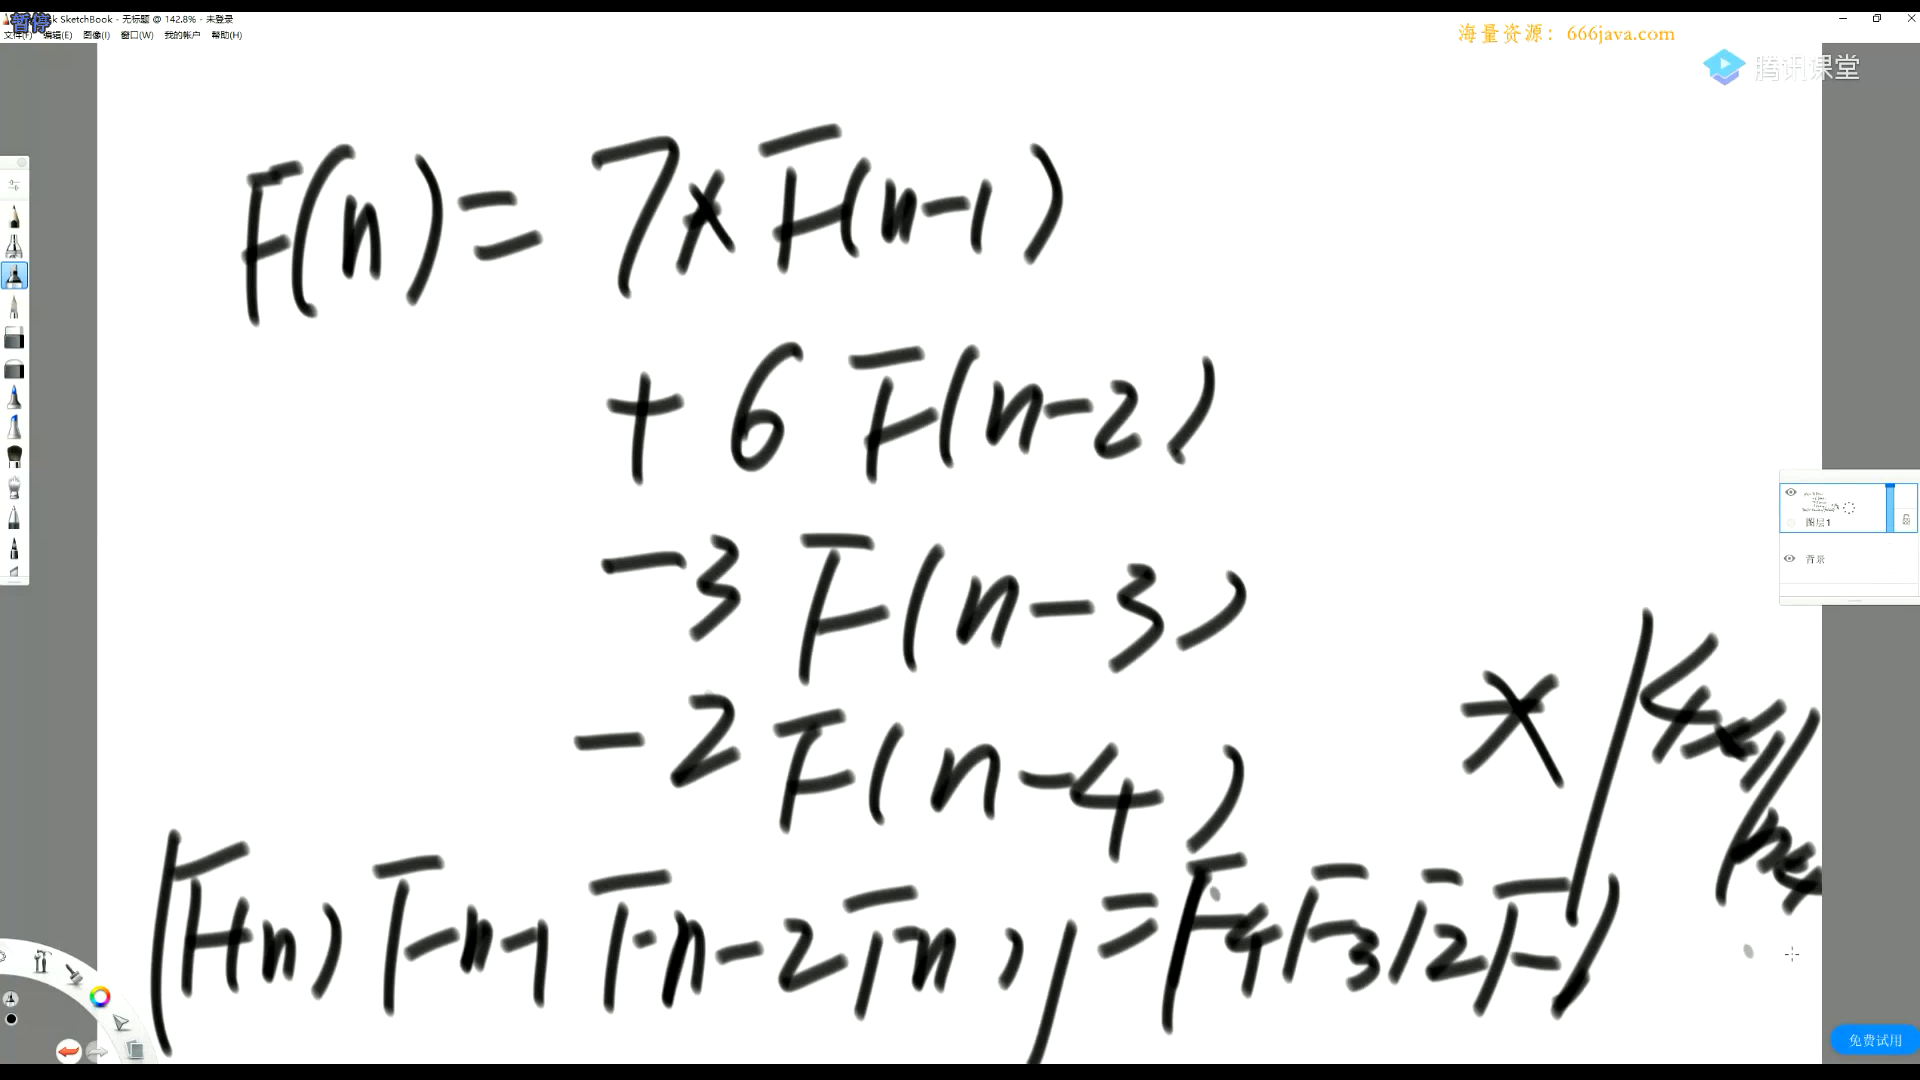 暂停
sk SketchBook - 无标题 @ 142.8% - 未登录
文件(F) 编辑(E) 图像(I) 窗口(W) 我的帐户 帮助(H)
海量资源：666java.com
腾讯课堂
F(n) = 7x F(n-1)
+ 6 F(n-2)
-3 F(n-3)
-2 F(n-4)
图层1
背景
x |4x4|
|Fn) Fn-1 Fn-2 Fn )| = |F4 F3 F2 F1|
免费试用